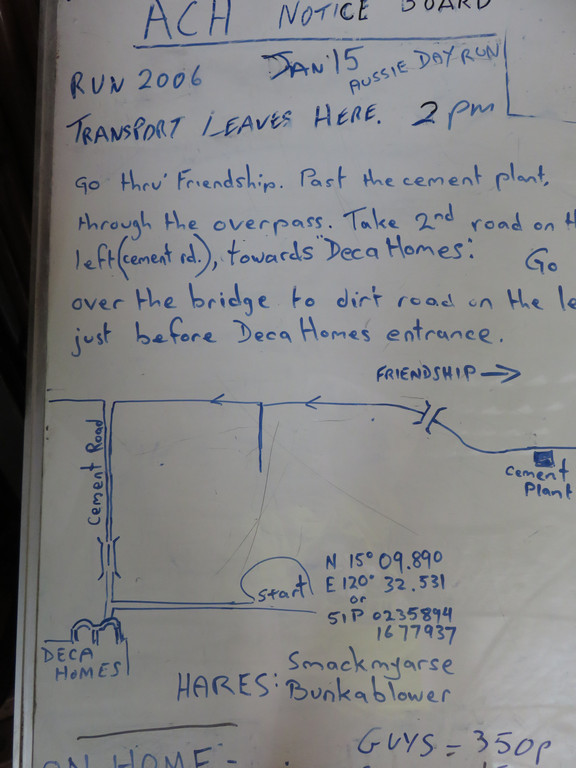 ACH NOTICE BOARD
RUN 2006 JAN 15 AUSSIE DAY RUN
TRANSPORT LEAVES HERE. 2 pm
Go thru' Friendship. Past the cement plant,
through the overpass. Take 2nd road on
left (cement rd.), towards "Deca Homes". Go
over the bridge to dirt road on the
just before Deca Homes entrance.
FRIENDSHIP →
Cement Road
Cement
Plant
Start
N 15° 09.890
E 120° 32.531
or
51P 0235894
1677937
DECA
HOMES
HARES: Smackmyarse
Bunkablower
GUYS = 350p
ON HOME -